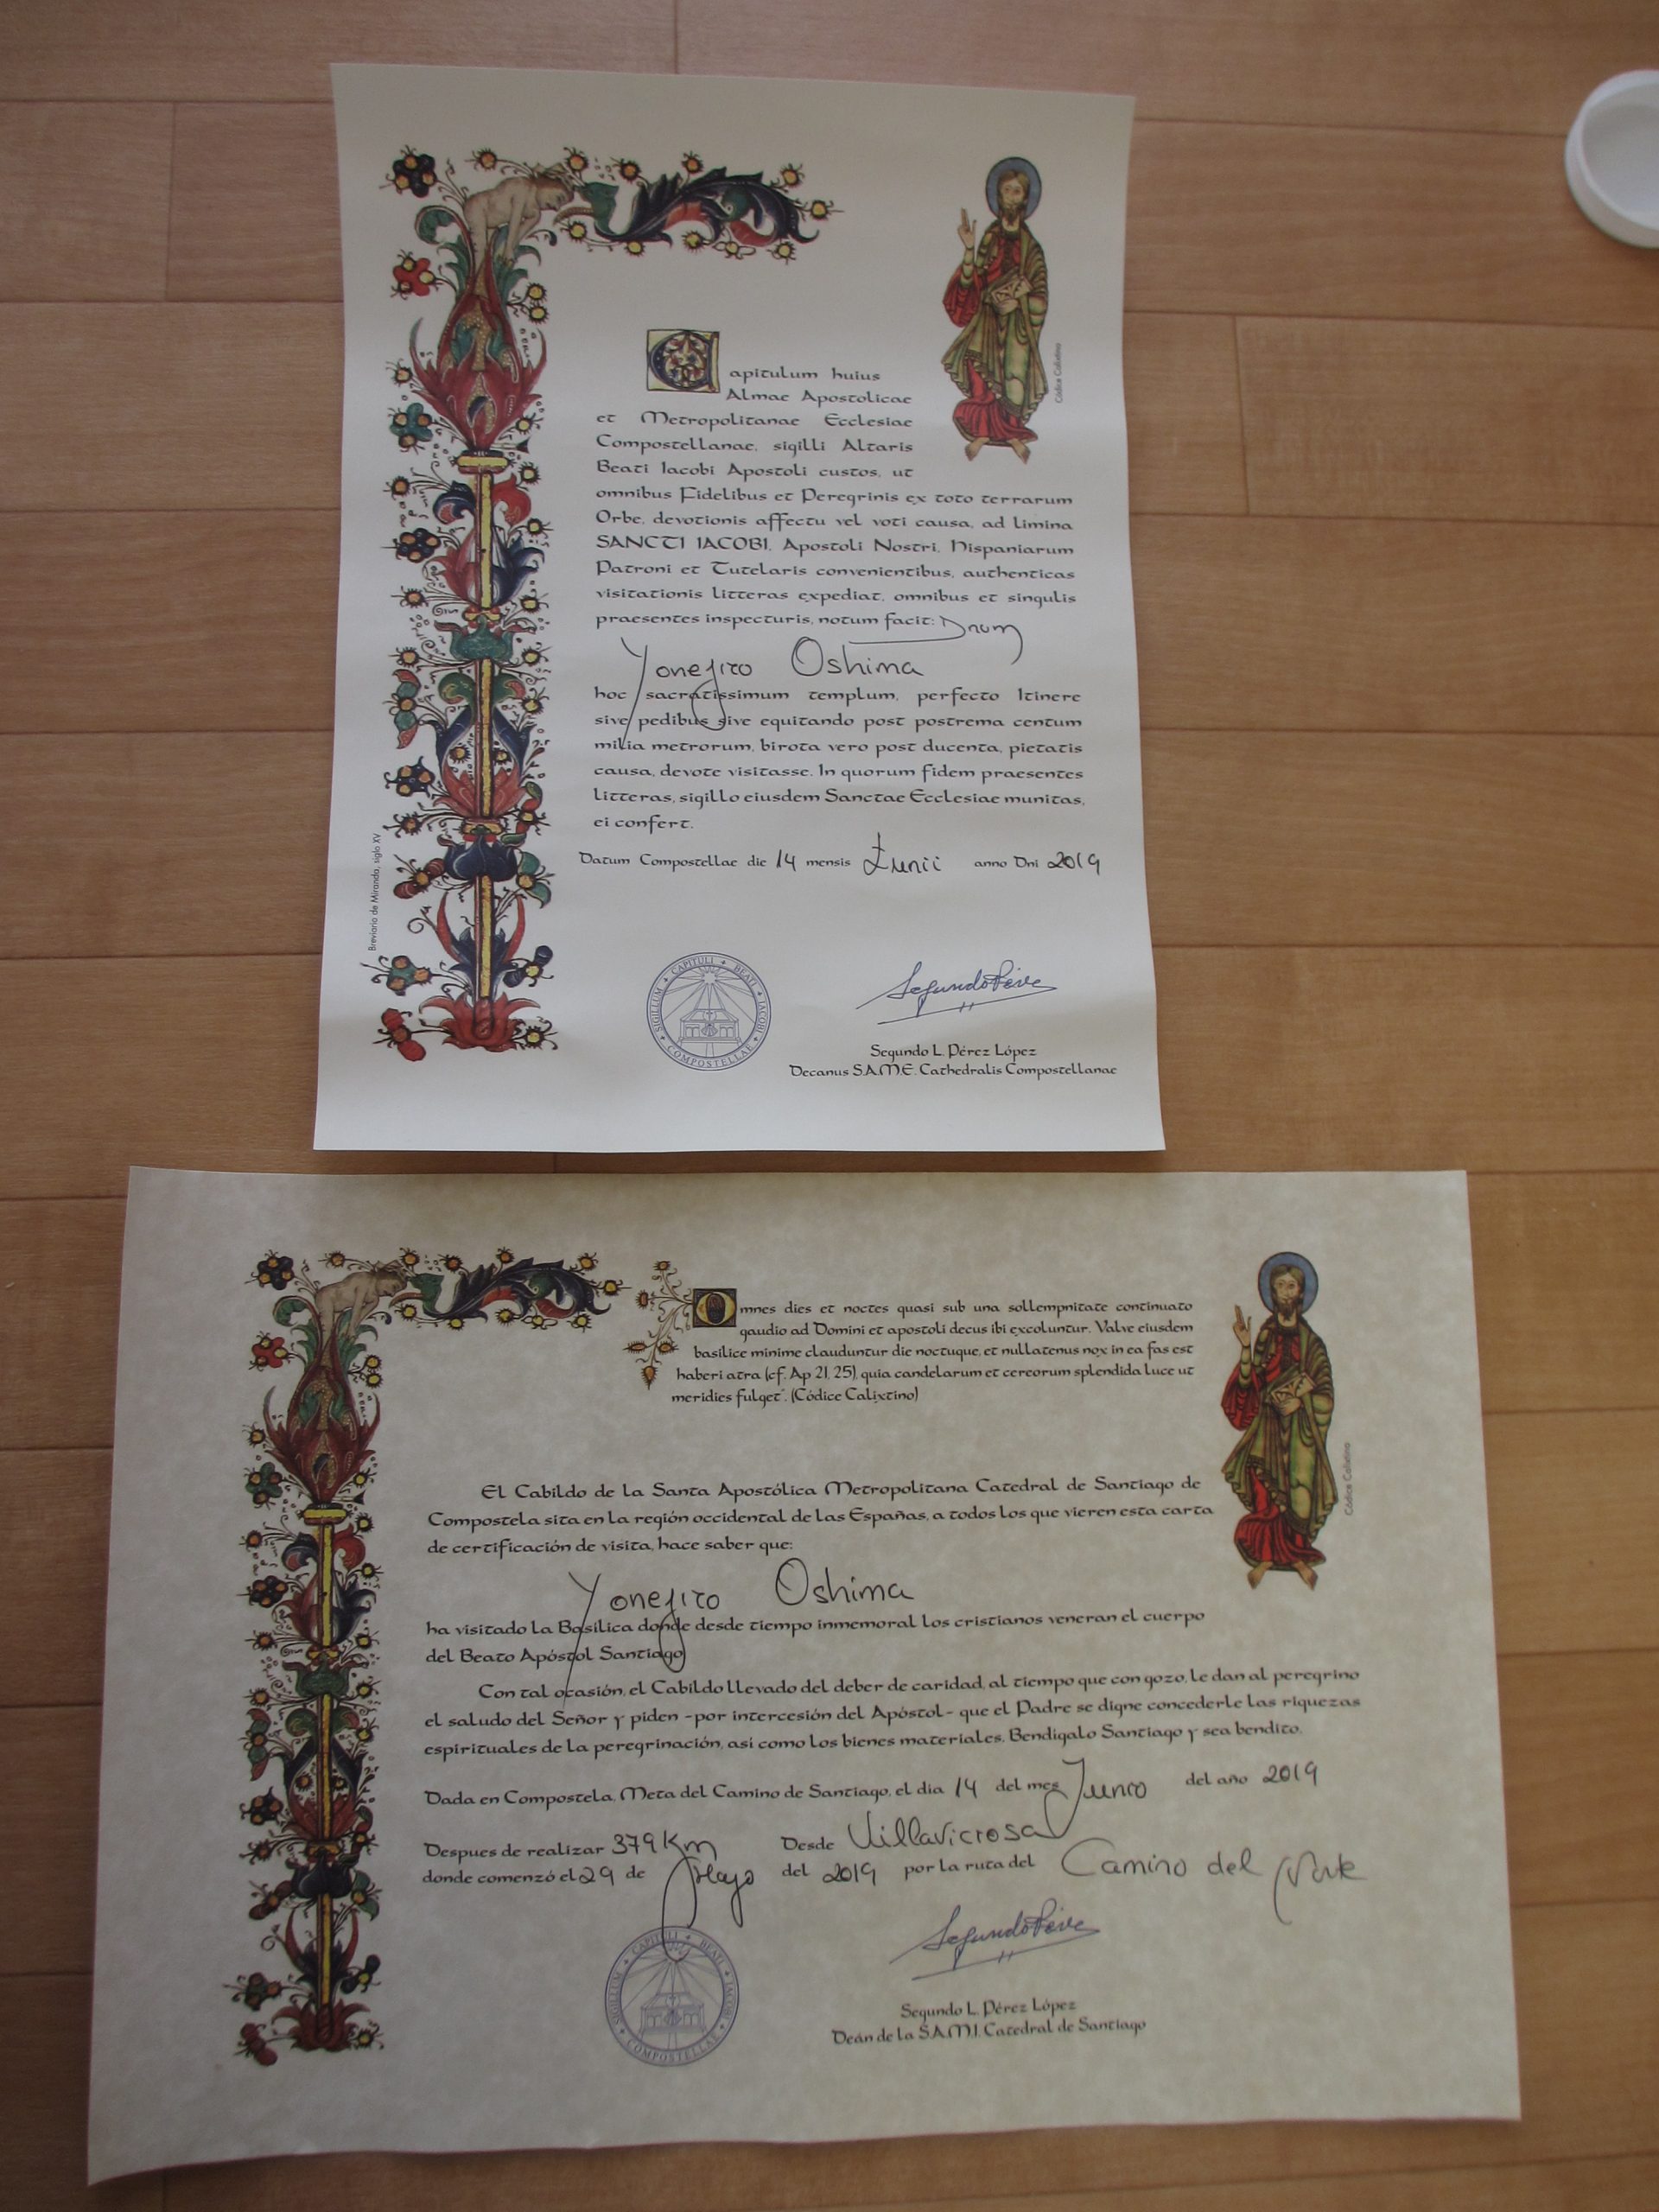 Capitulum huius
Almae Apostolicae
et Metropolitanae Ecclesiae
Compostellanae, sigilli Altaris
Beati Iacobi Apostoli custos, ut
omnibus Fidelibus et Peregrinis ex toto terrarum
Orbe, devotionis affectu vel voti causa, ad limina
SANCTI IACOBI, Apostoli Nostri, Hispaniarum
Patroni et Tutelaris convenientibus, authenticas
visitationis litteras expediat, omnibus et singulis
praesentes inspecturis, notum facit: Dnum
Yonejiro Oshima
hoc sacratissimum templum, perfecto Itinere
sive pedibus sive equitando post postrema centum
milia metrorum, birota vero post ducenta, pietatis
causa, devote visitasse. In quorum fidem praesentes
litteras, sigillo eiusdem Sanctae Ecclesiae munitas,
ei confert.
Datum Compostellae die 14 mensis Iunii anno Dni 2019
Códice Calixtino
Breviario de Miranda, siglo XV
SIGILLUM CAPITULI BEATI JACOBI
COMPOSTELLAE
Segundo L. Pérez López
Decanus S.A.M.E. Cathedralis Compostellanae
Omnes dies et noctes quasi sub una sollempnitate continuato
gaudio ad Domini et apostoli decus ibi excoluntur. Valve eiusdem
basilice minime clauduntur die noctuque, et nullatenus nox in ea fas est
haberi atra (cf. Ap 21, 25), quia candelarum et cereorum splendida luce ut
meridies fulget". (Códice Calixtino)
Códice Calixtino
El Cabildo de la Santa Apostólica Metropolitana Catedral de Santiago de
Compostela sita en la región occidental de las Españas, a todos los que vieren esta carta
de certificación de visita, hace saber que:
Yonejiro Oshima
ha visitado la Basílica donde desde tiempo inmemoral los cristianos veneran el cuerpo
del Beato Apóstol Santiago
Con tal ocasión, el Cabildo llevado del deber de caridad, al tiempo que con gozo, le dan al peregrino
el saludo del Señor y piden -por intercesión del Apóstol- que el Padre se digne concederle las riquezas
espirituales de la peregrinación, así como los bienes materiales. Bendígalo Santiago y sea bendito.
Dada en Compostela, Meta del Camino de Santiago, el día 14 del mes Junio del año 2019
Despues de realizar 379 Km Desde Villaviciosa
donde comenzó el 29 de Mayo del 2019 por la ruta del Camino del Norte
SIGILLUM CAPITULI BEATI JACOBI
COMPOSTELLAE
Segundo L. Pérez López
Deán de la S.A.M.I. Catedral de Santiago